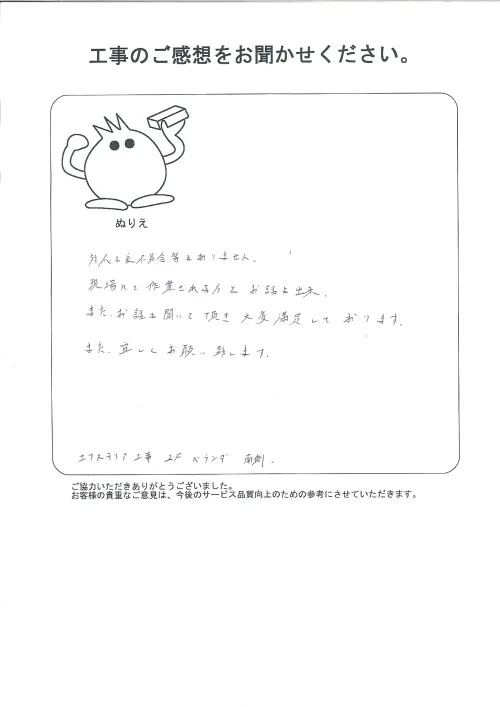 工事のご感想をお聞かせください。
ぬりえ
対応も良不具合等もありません。
現場にて作業される方とお話も出来、
また、お話も聞いて頂き大変満足しております。
また、宜しくお願い致します。
エクステリア工事 2F ベランダ 南側。
ご協力いただきありがとうございました。
お客様の貴重なご意見は、今後のサービス品質向上のための参考にさせていただきます。